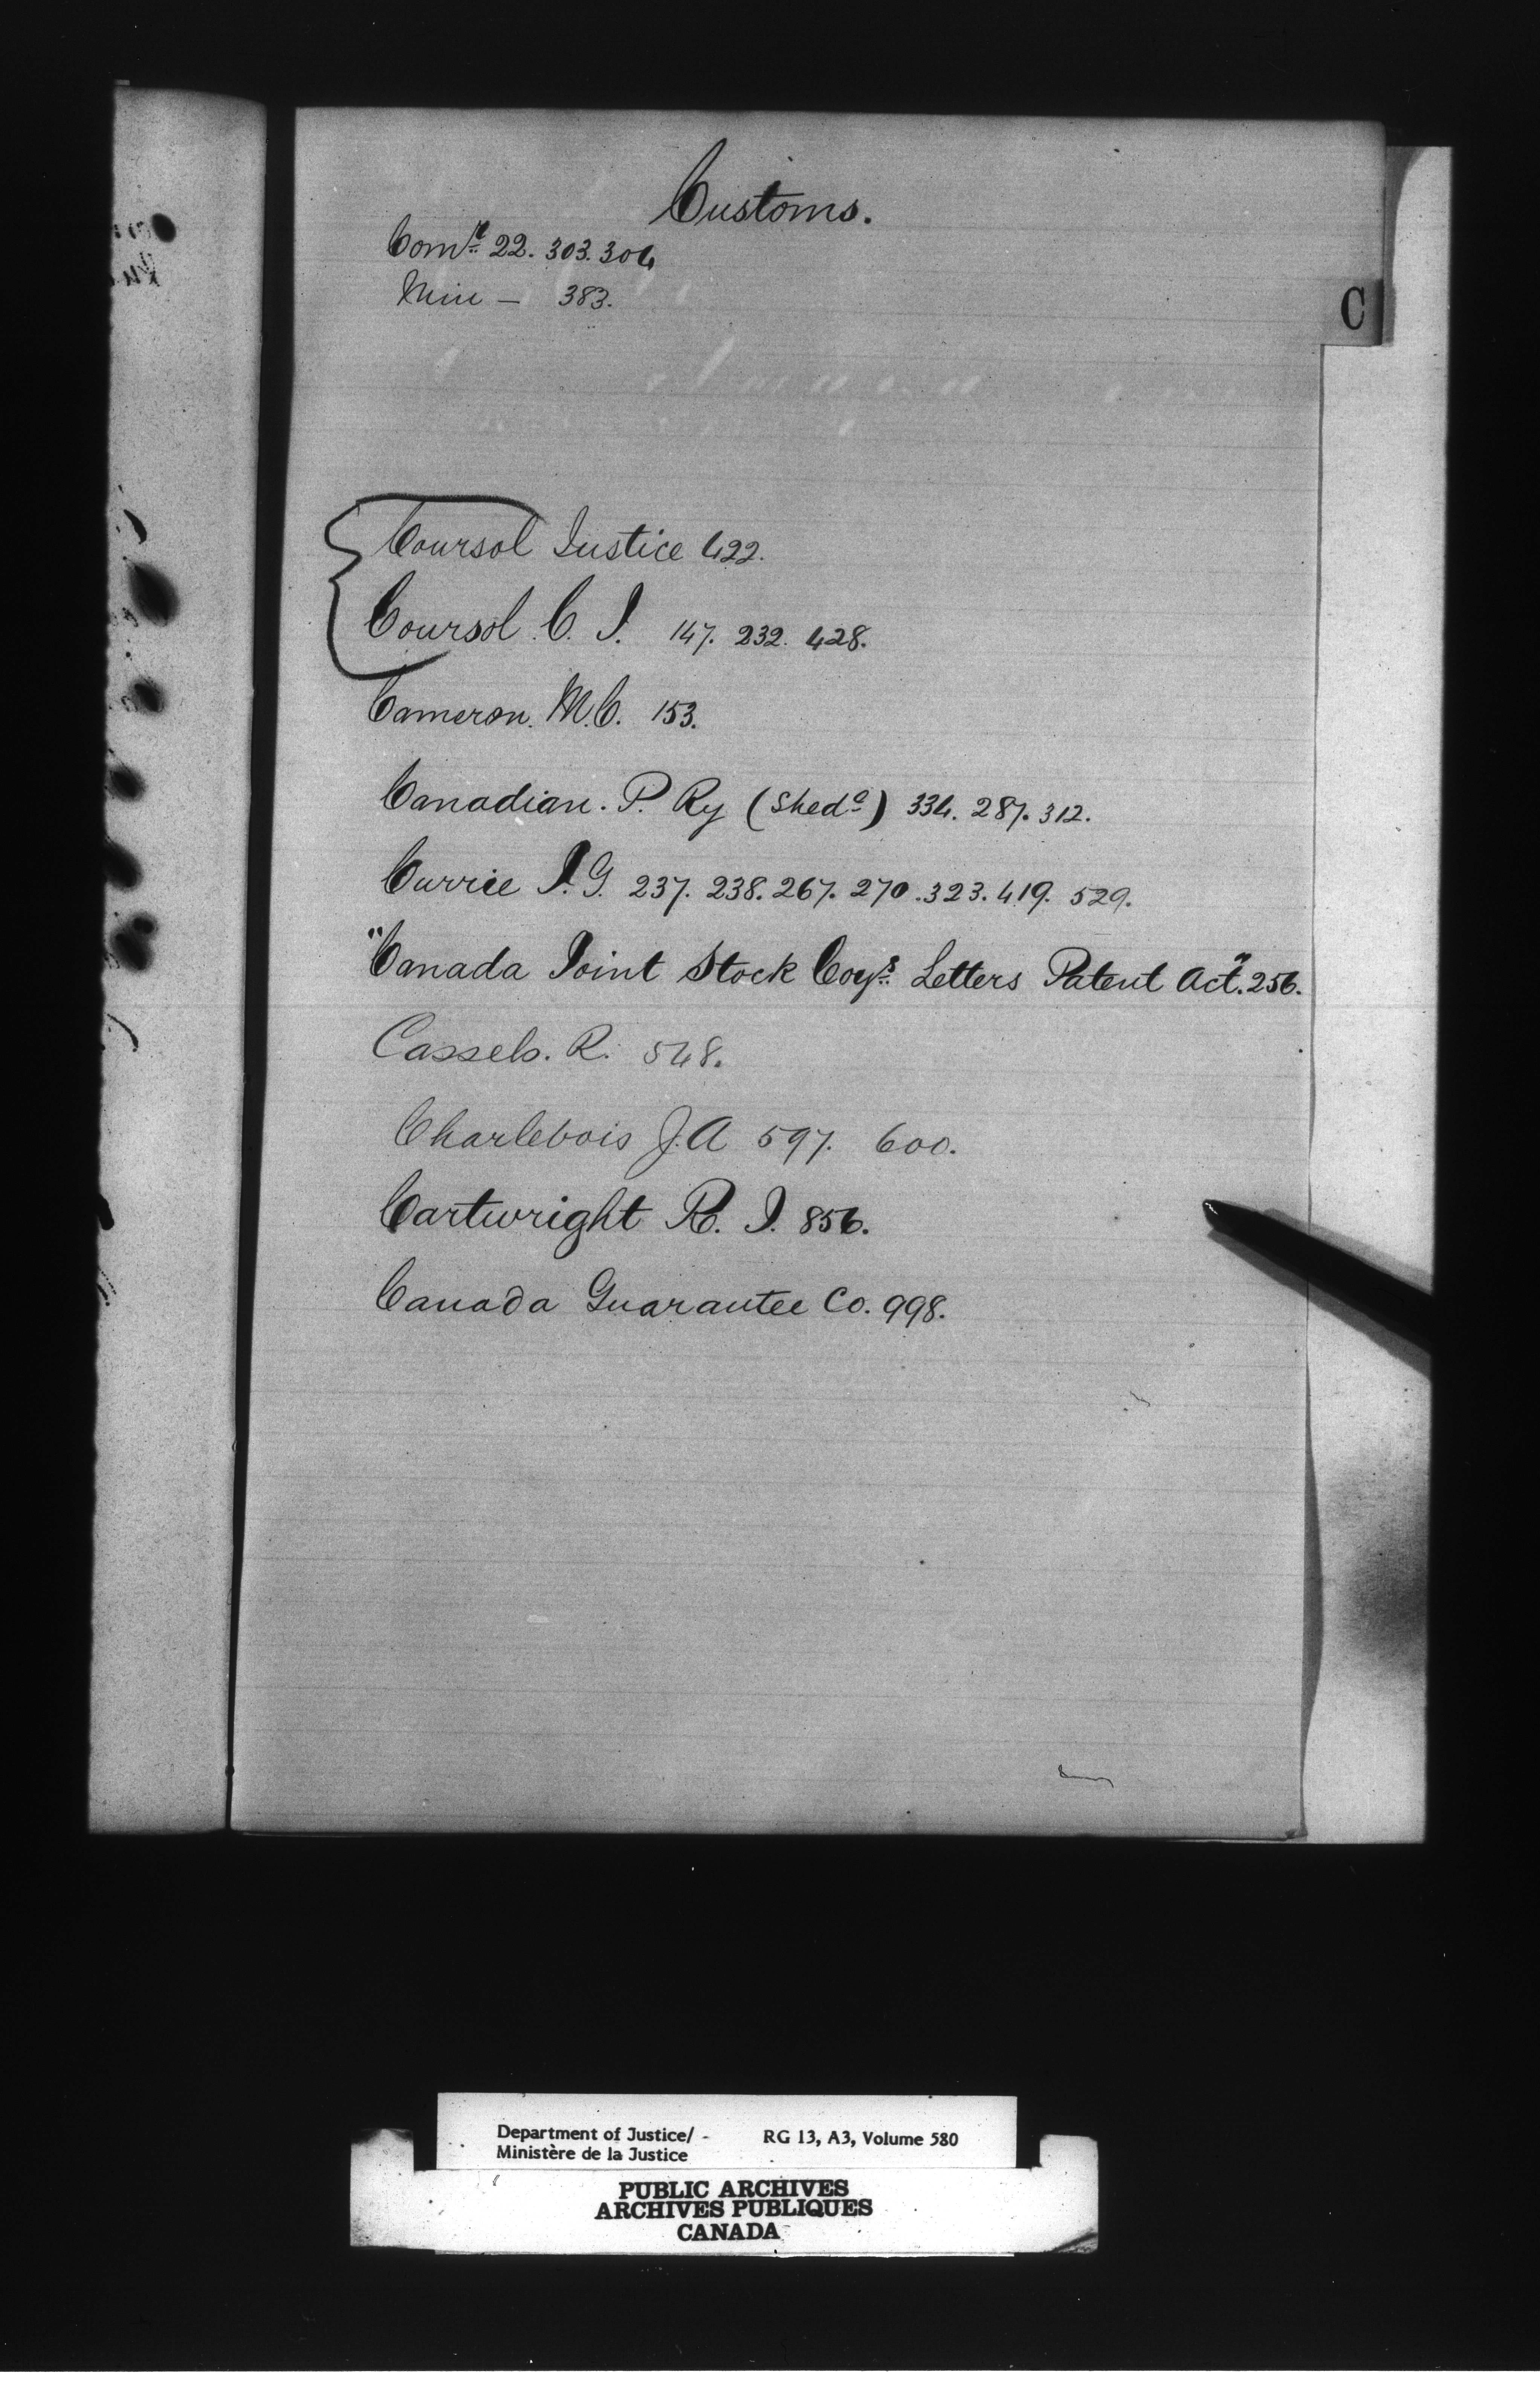 Customs.
Comr 22. 303. 304
Min — 383.
C
Coursol Justice 422.
Coursol. C. J. 147. 232. 428.
Cameron. M.C. 153.
Canadian. P. Ry (Shedc) 334. 287. 312.
Currie J. G. 237. 238. 267. 270. 323. 419. 529.
"Canada Joint Stock Coys Letters Patent Act". 256.
Cassels. R. 548.
Charlebois J. A 597. 600.
Cartwright R. J. 856.
Canada Guarantee Co. 998.
Department of Justice/ - RG 13, A3, Volume 580
Ministère de la Justice
PUBLIC ARCHIVES
ARCHIVES PUBLIQUES
CANADA